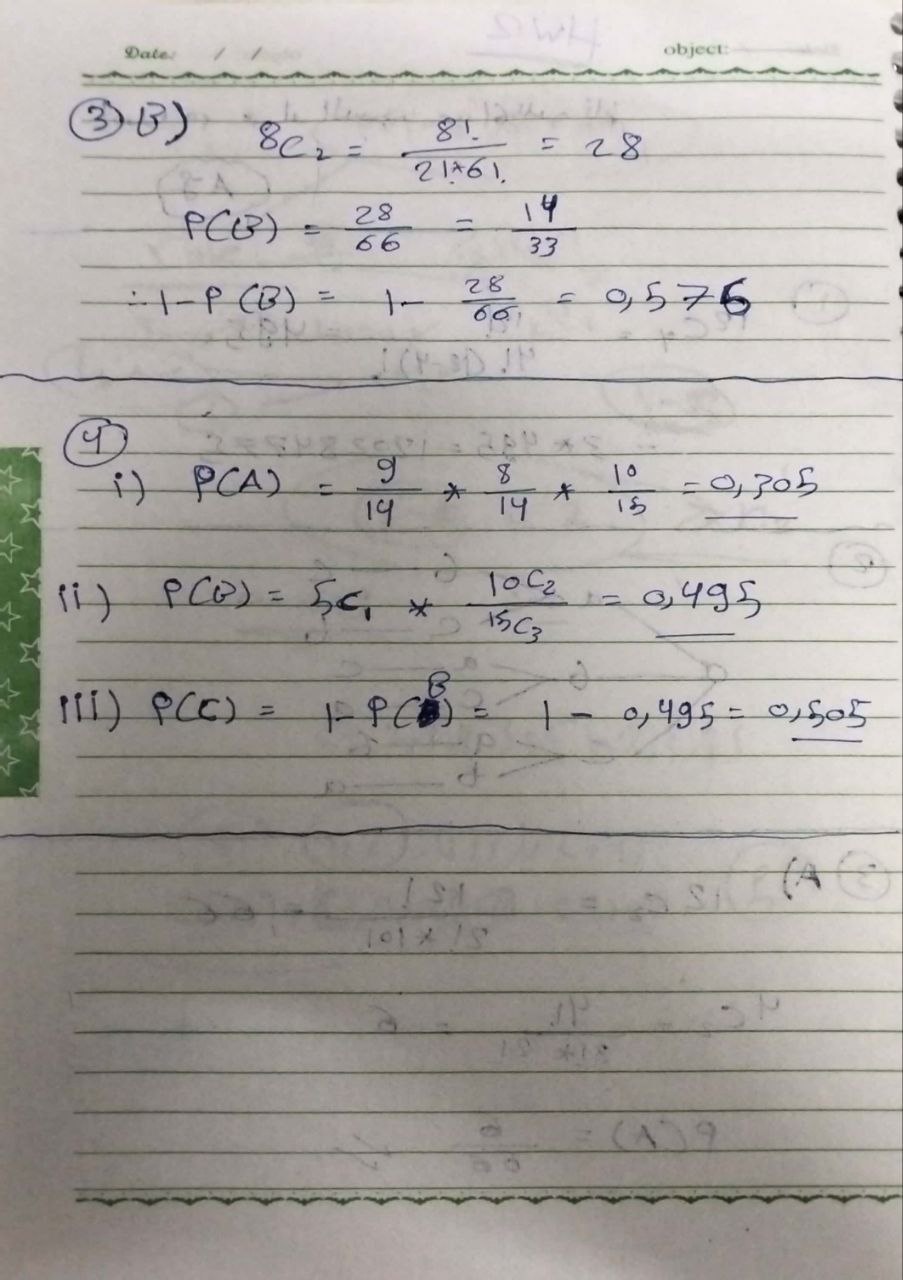 Date: / / object:
③ B) 8C₂ = 8!/2!*6! = 28
P(B) = 28/66 = 14/33
∴ 1 - P(B) = 1 - 28/66 = 0,576
④
i) P(A) = 9/14 * 8/14 * 10/15 = 0,305
ii) P(B) = 5C₁ * 10C₂/15C₃ = 0,495
iii) P(C) = 1 - P(B) = 1 - 0,495 = 0,505